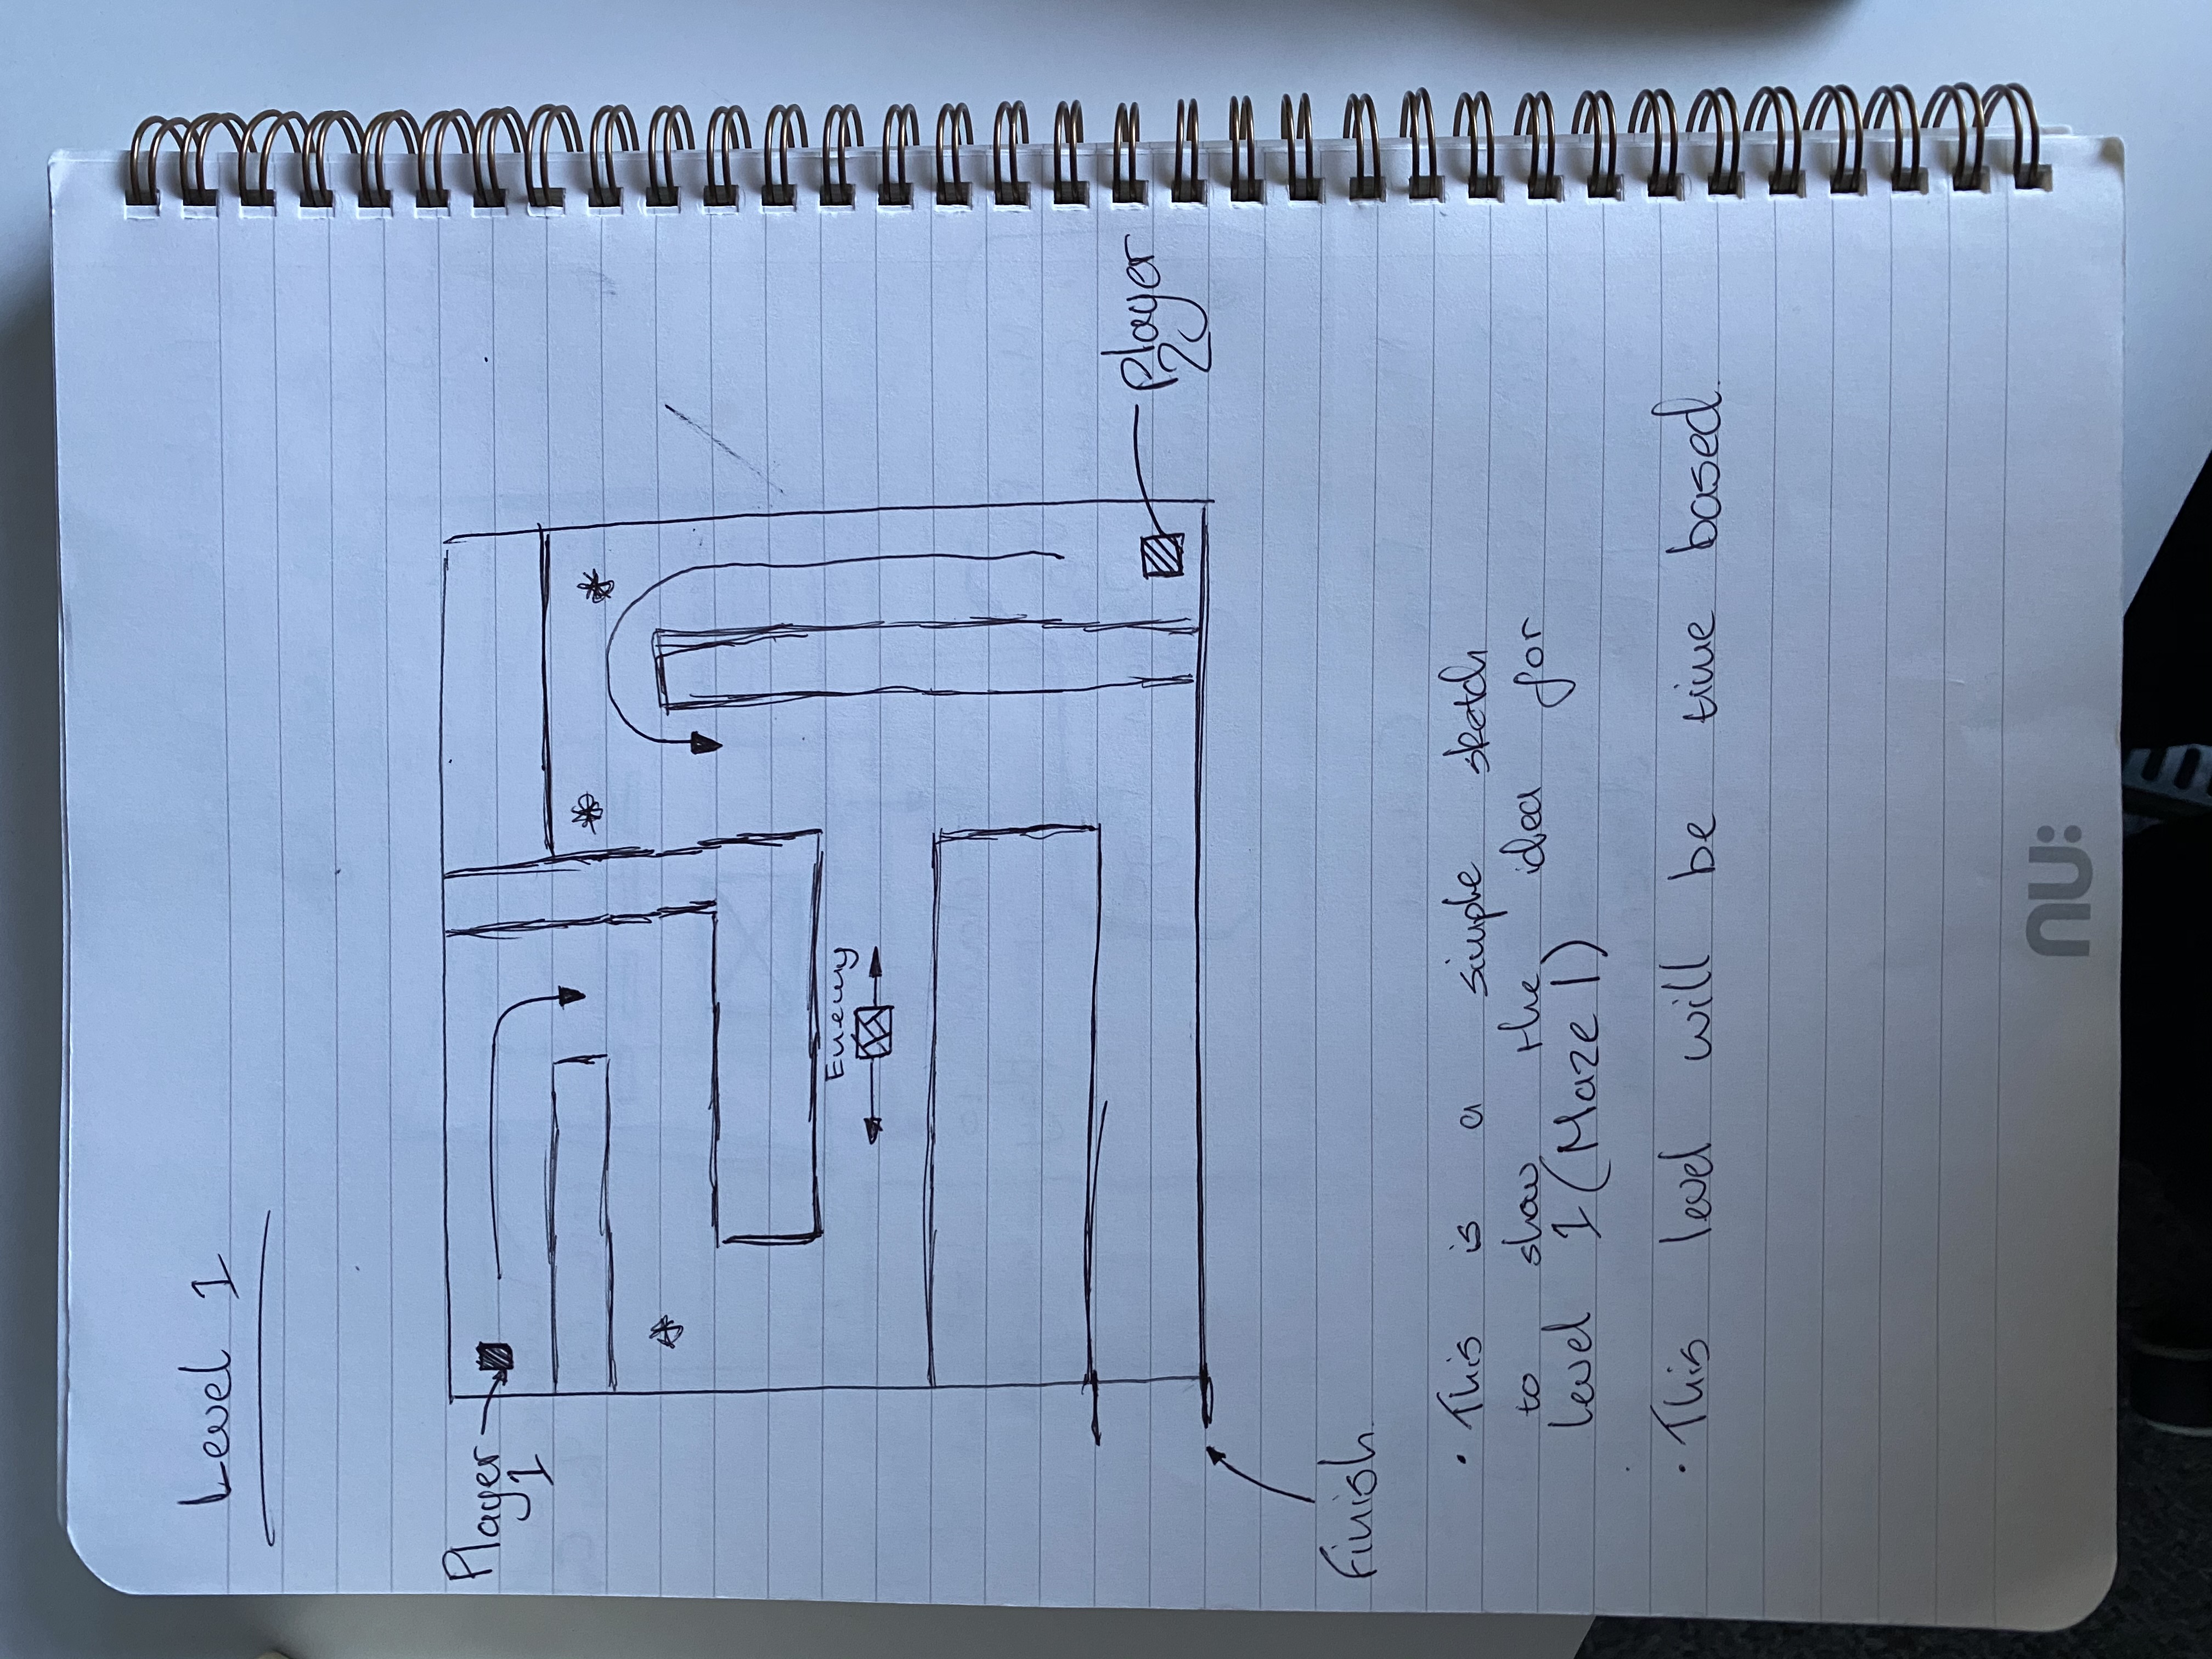 Level 1
Player
1
Enemy
player
2
Finish
• This is a simple sketch
to show the idea for
level 1 (Maze 1)
• This level will be time based.
nu: